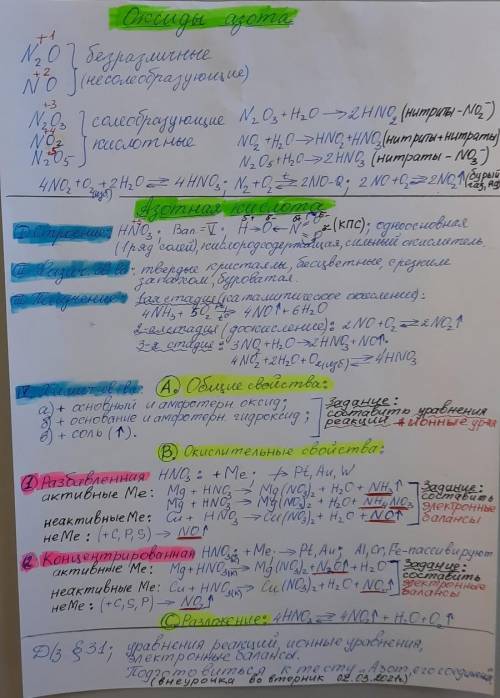 Оксиды азота
+1
N₂O } безразличные
+2
NO } (несолеобразующие)
+3
N₂O₃ } солеобразующие N₂O₃ + H₂O → 2HNO₂ (нитриты - NO₂⁻)
+4
NO₂ } кислотные NO₂ + H₂O → HNO₂ + HNO₃ (нитриты + нитраты)
+5
N₂O₅ N₂O₅ + H₂O → 2HNO₃ (нитраты - NO₃⁻)
4NO₂ + O₂(изб) + 2H₂O ⇄ 4HNO₃; N₂ + O₂ ⇄ 2NO - Q; 2NO + O₂ ⇄ 2NO₂↑ (бурый газ,
Азотная кислота
I Строение: HNO₃; Вал. = V; H → O ← N (КПС); одноосновная
(1 ряд солей), кислородсодержащая, сильный окислитель.
II твердые кристаллы, бесцветные, с резким
запахом, буроватая.
III Получение: 1-ая стадия (каталитическое окисление):
4NH₃ + 5O₂ ⇄ 4NO↑ + 6H₂O
2-ая стадия (доокисление): 2NO + O₂ ⇄ 2NO₂↑
3-я стадия: 3NO₂ + H₂O → 2HNO₃ + NO↑.
4NO₂ + 2H₂O + O₂(изб) ⇄ 4HNO₃
А. Общие свойства:
а) + основный и амфотерн. оксид;
б) + основание и амфотерн. гидроксид;
в) + соль (↑).
Задание:
составить уравнения
реакций + ионные урав
В. Окислительные свойства:
1 Разбавленная HNO₃: + Me; ↛ Pt, Au, W
активные Me: Mg + HNO₃ → Mg(NO₃)₂ + H₂O + NH₃↑
Mg + HNO₃ → Mg(NO₃)₂ + H₂O + NH₄NO₃
неактивные Me: Cu + HNO₃ → Cu(NO₃)₂ + H₂O + NO↑
неMe: (+C, P, S) → NO↑
Задание:
составить
электронные
балансы
2 Концентрированная HNO₃: + Me; ↛ Pt, Au; Al, Cr, Fe - пассивируют
активные Me: Mg + HNO₃(к) → Mg(NO₃)₂ + N₂O↑ + H₂O
неактивные Me: Cu + HNO₃(к) → Cu(NO₃)₂ + H₂O + NO₂↑
неMe: (+C, S, P) → NO₂↑
Задание:
составить
электронные
балансы
С. Разложение: 4HNO₃ → 4NO₂↑ + H₂O + O₂↑
Д/з § 31; уравнения реакций, ионные уравнения,
электронные балансы.
Подготовиться к тесту „Азот, его соединения
(внеурочка во вторник 02.03.2021г)